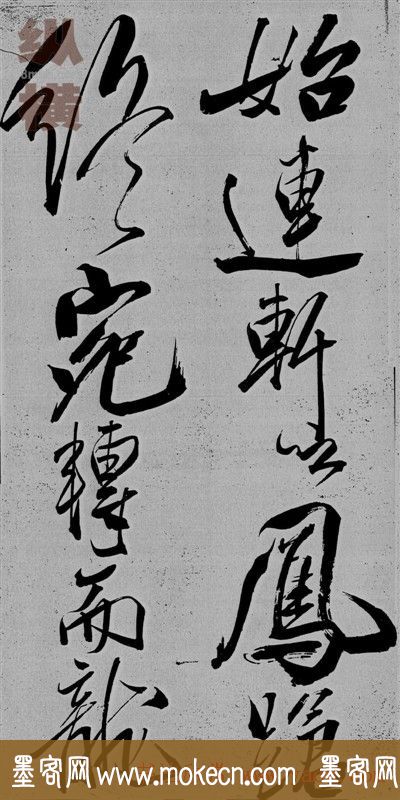 始連軒以鳳蹌
終宛轉而龍
纵横
墨客网 www.mokecn.com 墨客网